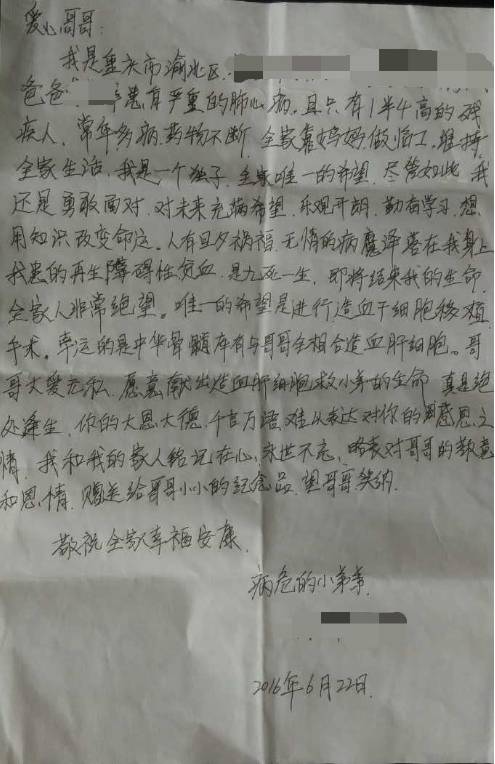 爱心哥哥:
我是重庆市渝北区
爸爸 患有严重的肺心病,且只有1米4高的残
疾人,常年多病,药物不断,全家靠妈妈做临工,维持
全家生活,我是一个独子,全家唯一的希望,尽管如此,我
还是勇敢面对,对未来充满希望,乐观开朗,勤奋学习,想
用知识改变命运。人有旦夕祸福,无情的病魔降落在我身上
我患的再生障碍性贫血,是九死一生,即将结束我的生命,
全家人非常绝望。唯一的希望是进行造血干细胞移植
手术。幸运的是中华骨髓库有与哥哥全相合造血肝细胞。哥
哥大爱无私,愿意献出造血肝细胞救小弟的生命,真是绝
处逢生,你的大恩大德,千言万语,难以表达对你的感恩之
情,我和我的家人铭记在心,永世不忘,略表对哥哥的敬意
和恩情,赠送给哥哥小小的纪念品,望哥哥笑纳.
敬祝全家幸福安康.
病危的小弟弟.
2016年6月22日.